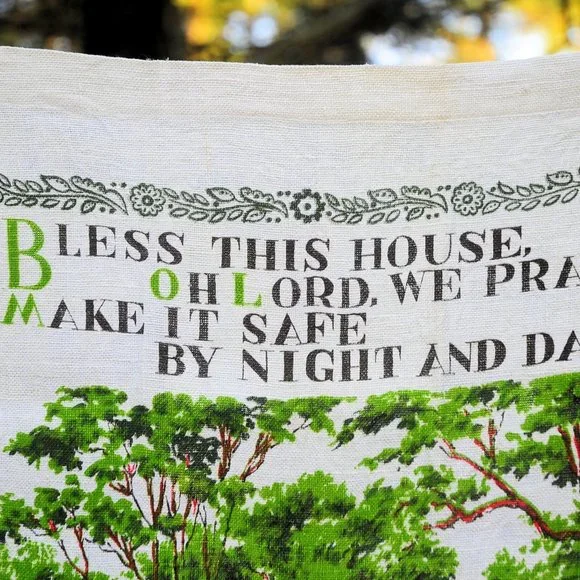 BLESS THIS HOUSE,
OH LORD, WE PRA
MAKE IT SAFE
BY NIGHT AND DA